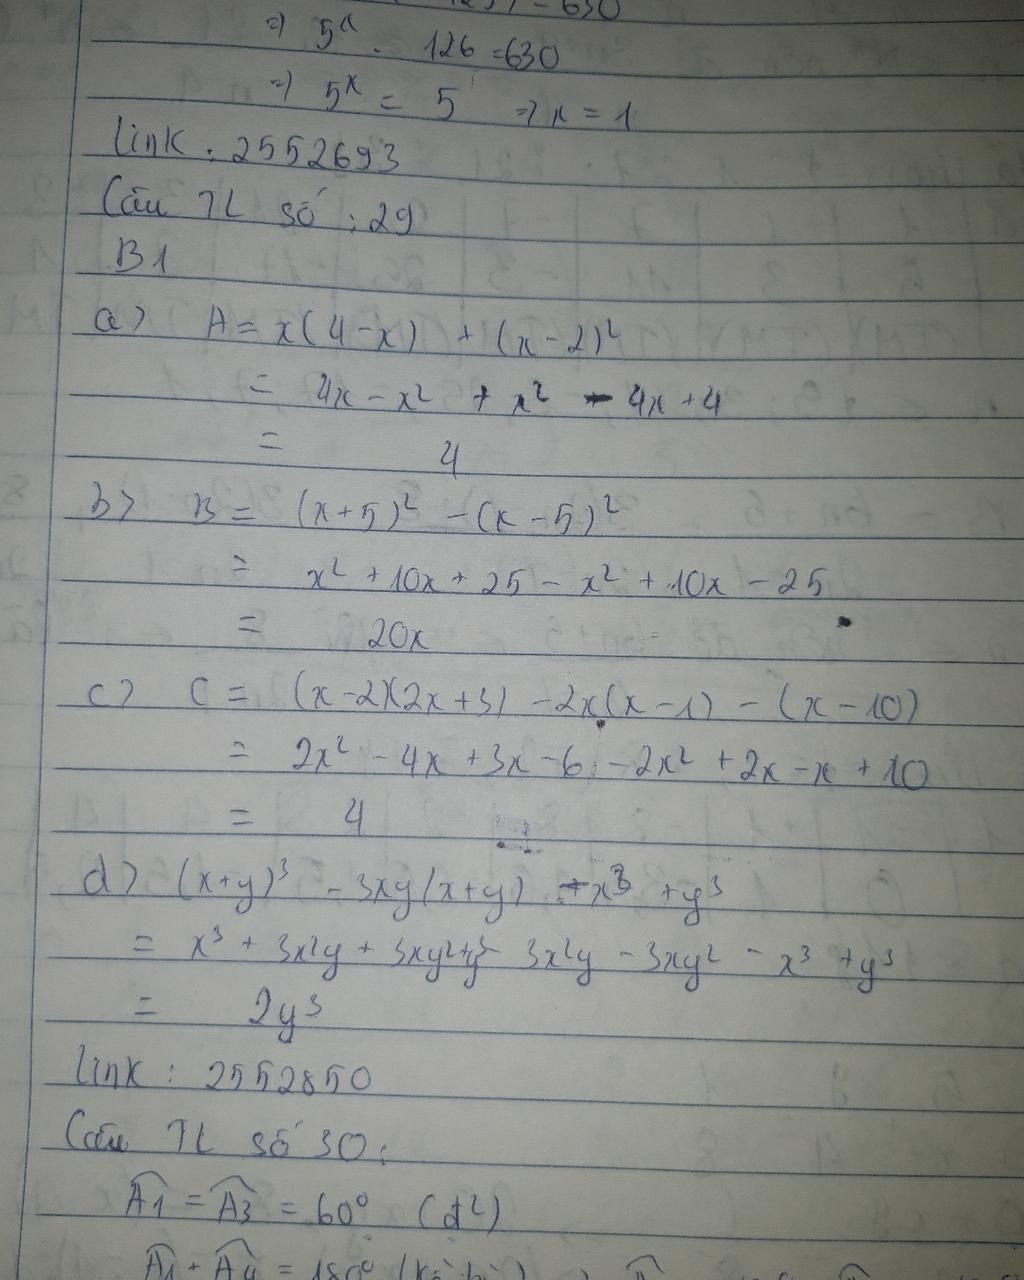 - 630
=) 5ˣ . 126 = 630
=) 5ˣ = 5 => x = 1
link : 2552693
Câu TL số : 29
B1
a> A = x(4-x) + (x-2)²
= 4x - x² + x² - 4x + 4
= 4
b> B = (x+5)² - (x-5)²
= x² + 10x + 25 - x² + 10x - 25
= 20x
c> C = (x-2)(2x+3) - 2x(x-1) - (x-10)
= 2x² - 4x + 3x - 6 - 2x² + 2x - x + 10
= 4
d> (x+y)³ - 3xy(x+y) - x³ + y³
= x³ + 3x²y + 3xy² + y³ - 3x²y - 3xy² - x³ + y³
= 2y³
link : 2552850
Câu TL số 30 :
Â1 = Â3 = 60° (đ²)
Â1 + Â4 = 180° (kề bù)